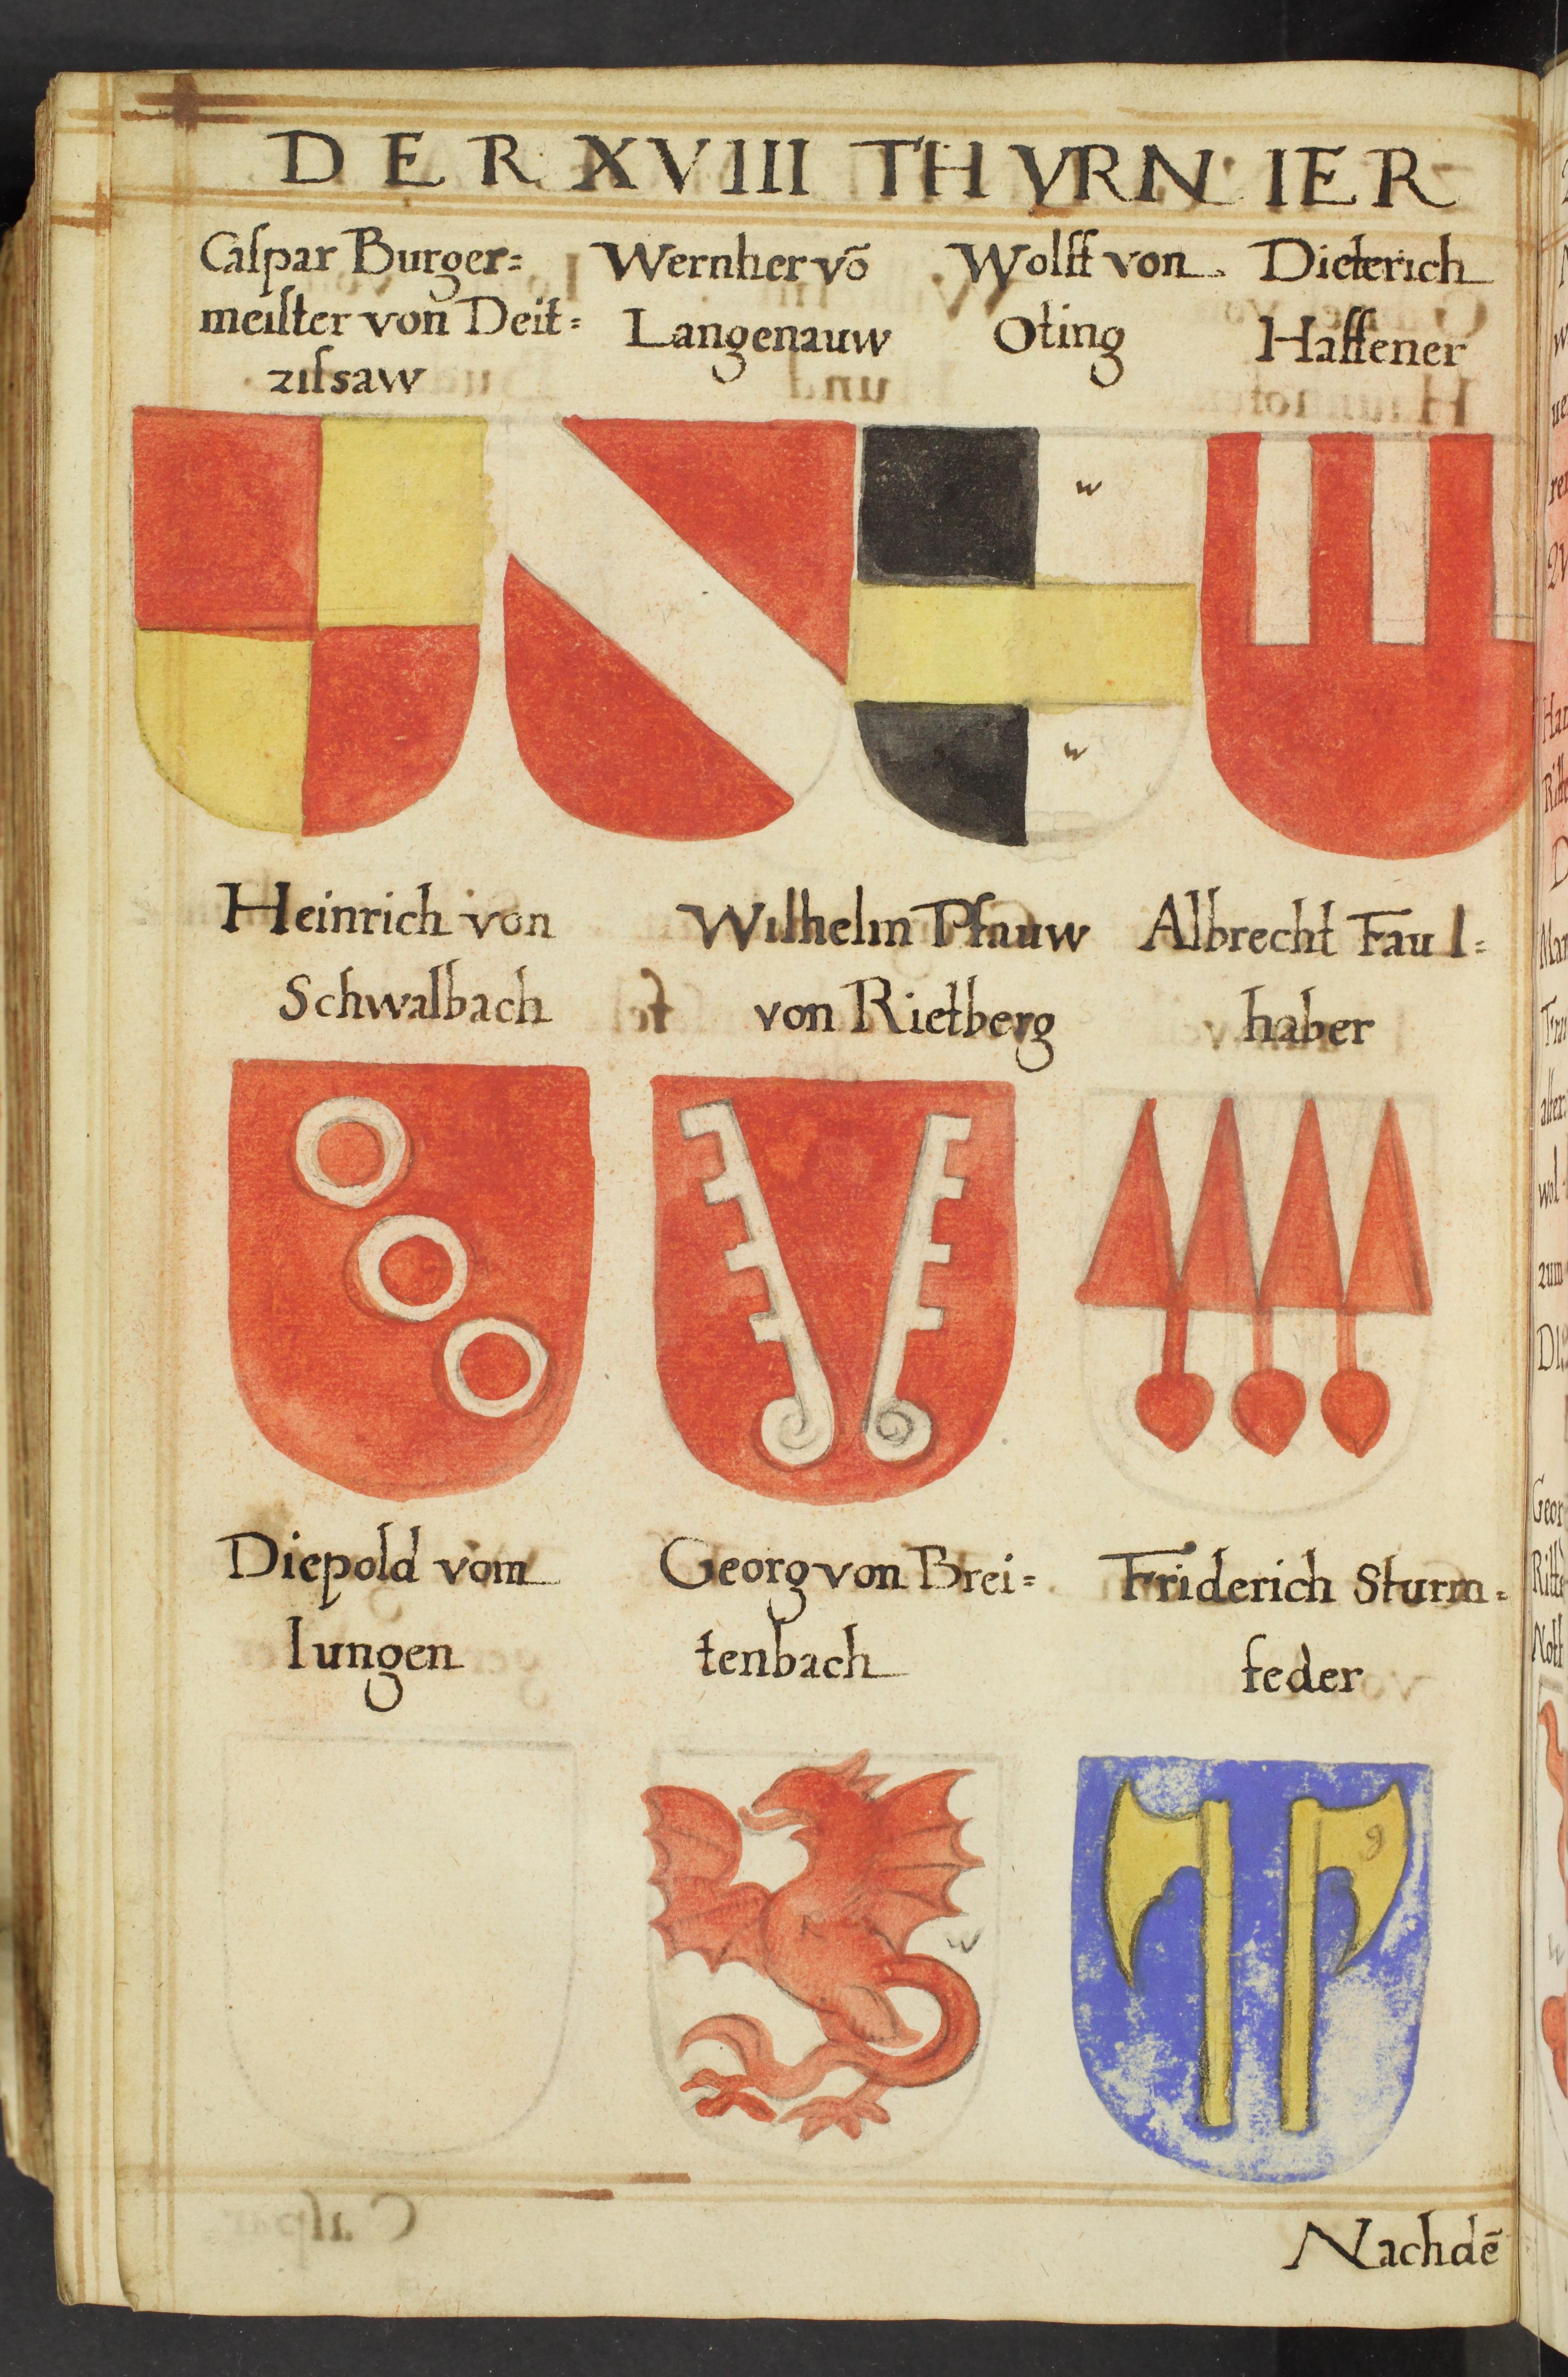 DER XVIII THVRNIER
Caſpar Burger=
meiſter von Deit=
zilsaw
Wernher võ
Langenauw
Wolff von
Oting
Dieterich
Haffener
w
w
Heinrich von
Schwalbach
Wilhelm Pfauw
von Rietberg
Albrecht Faul=
haber
Diepold vom
Iungen
Georg von Brei=
tenbach
Friderich Sturm=
feder
w
g
Nachdē